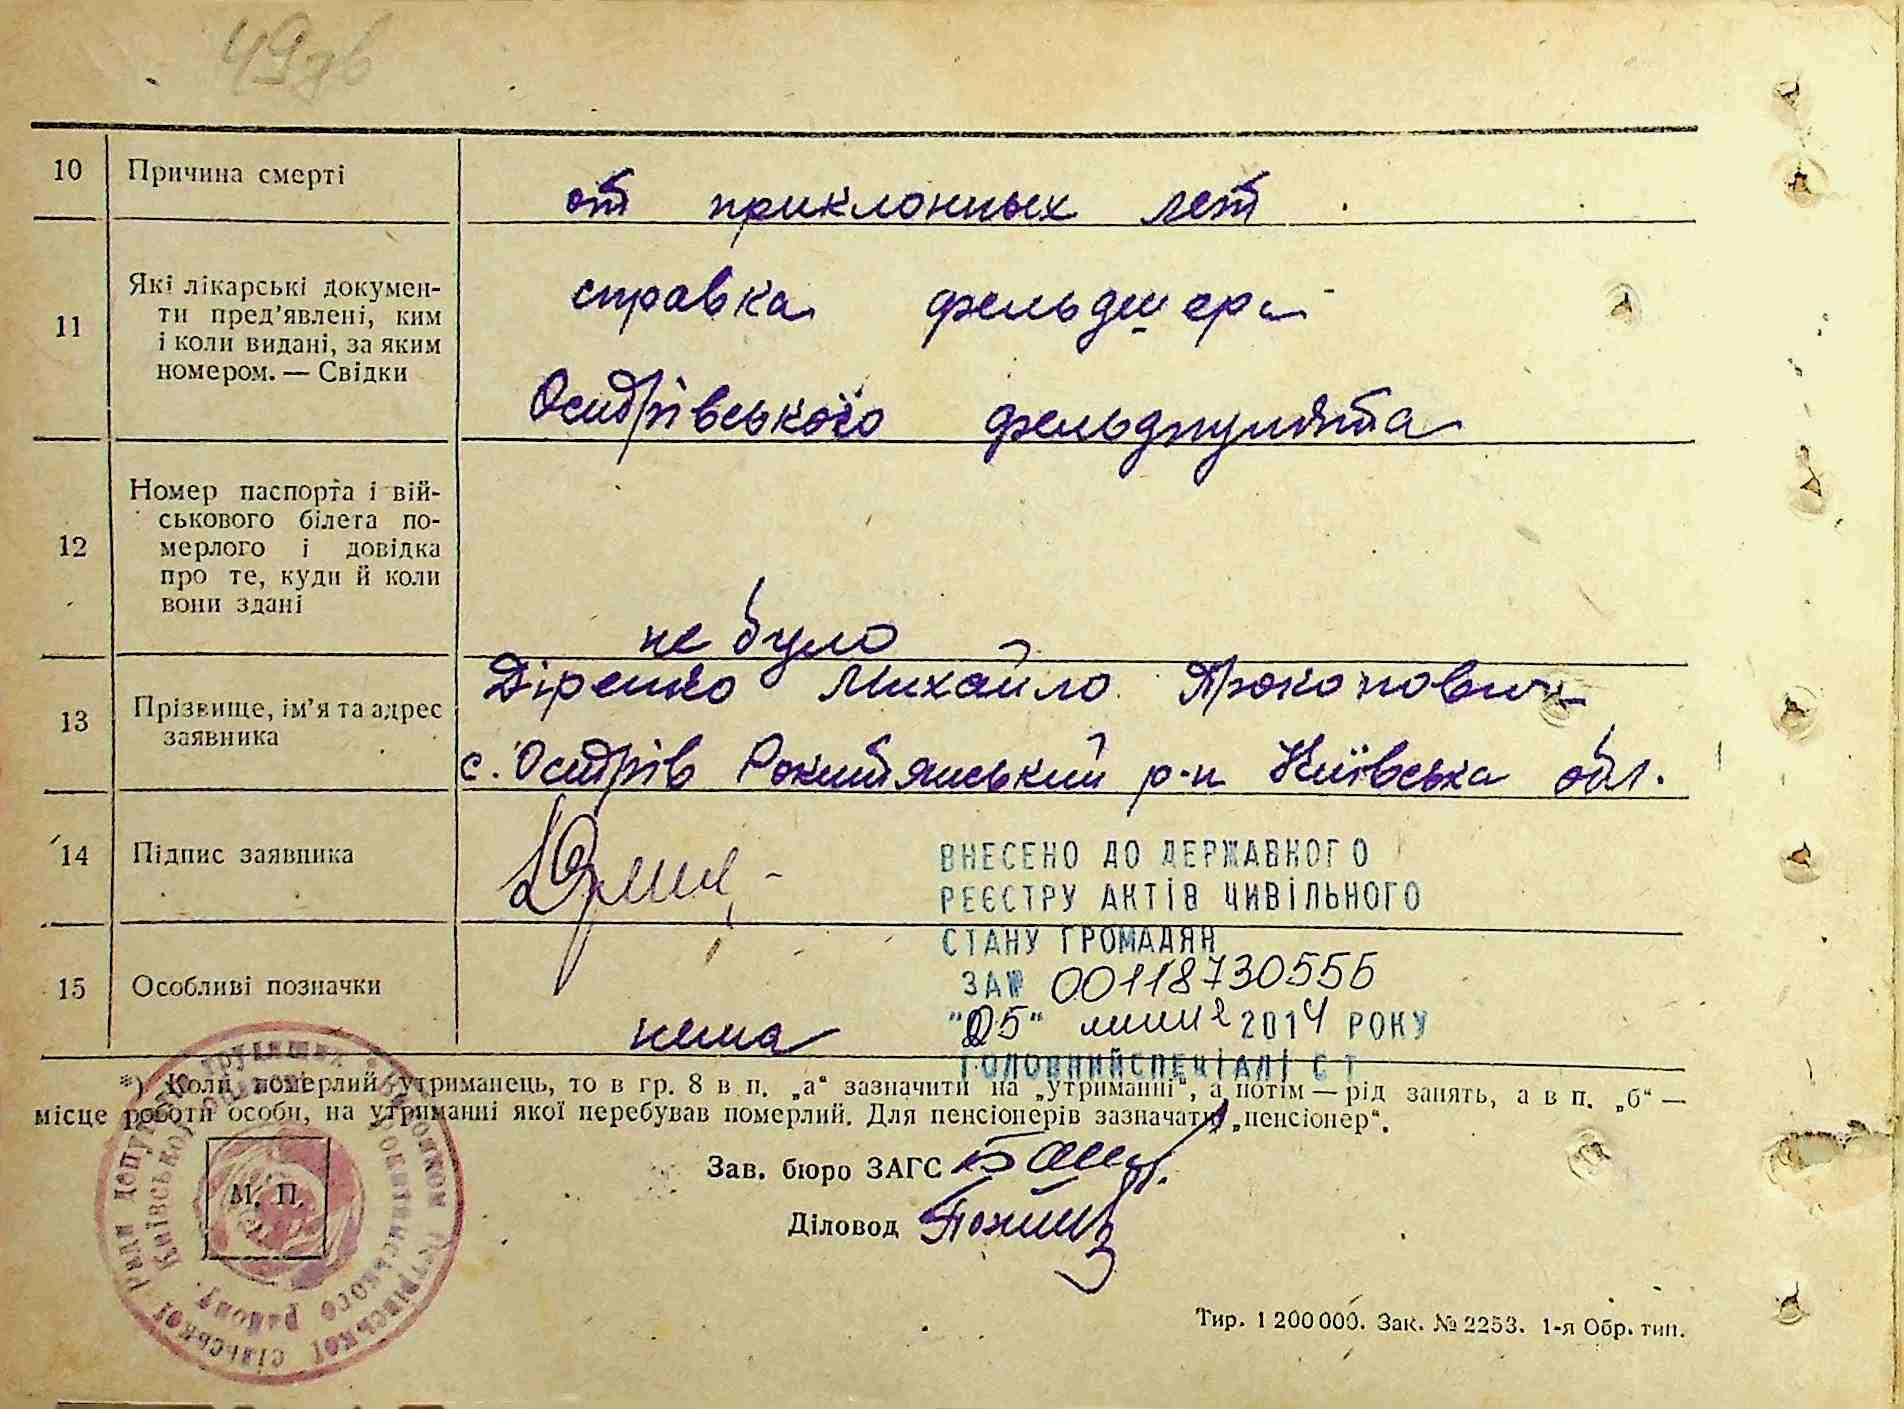 49
10 Причина смерті от приклонных лет
11 Які лікарські докумен-
ти пред'явлені, ким
і коли видані, за яким
номером. — Свідки
справка фельдшера
Острівського фельдпункта
12 Номер паспорта і вій-
ськового білета по-
мерлого і довідка
про те, куди й коли
вони здані
не було
13 Прізвище, ім'я та адрес
заявника
Діренко Михайло Прокопович
с. Острів Рокитянський р-н Київська обл.
14 Підпис заявника
ВНЕСЕНО ДО ДЕРЖАВНОГО
РЕЄСТРУ АКТІВ ЦИВІЛЬНОГО
СТАНУ ГРОМАДЯН
ЗА № 00118730555
15 Особливі позначки нема
"05" 2014 РОКУ
ГОЛОВНИЙ СПЕЦІАЛІСТ
*) Коли померлий утриманець, то в гр. 8 в п. „а“ зазначити на „утриманні“, а потім — рід занять, а в п. „б“ —
місце роботи особи, на утриманні якої перебував померлий. Для пенсіонерів зазначати „пенсіонер“.
Зав. бюро ЗАГС
М. П.
Діловод
Острівської сільської Ради депутатів трудящих
Рокитянського району, Київської
Тир. 1 200 000. Зак. № 2253. 1-я Обр. тип.